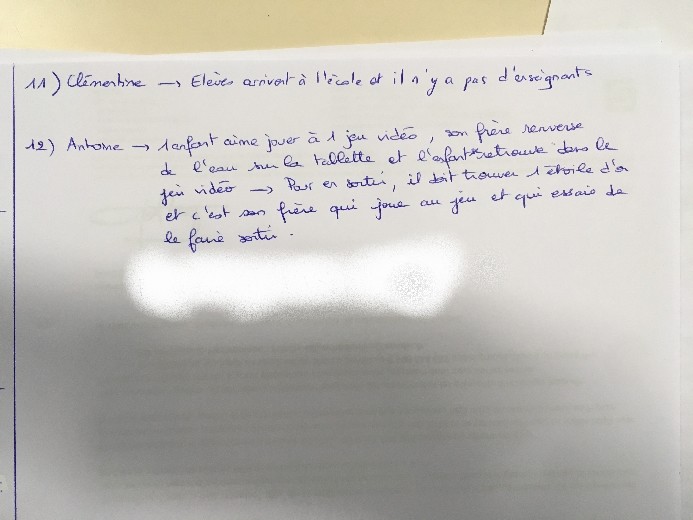 11) Clémentine → Elèves arrivent à l'école et il n'y a pas d'enseignants
12) Antoine → 1 enfant aime jouer à 1 jeu vidéo, son frère renverse
de l'eau sur la tablette et l'enfant se retrouve dans le
jeu vidéo → Pour en sortir, il doit trouver 1 étoile d'or
et c'est son frère qui joue au jeu et qui essaie de
le faire sortir.